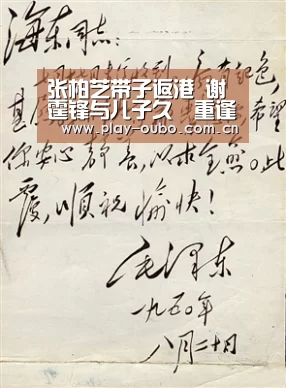 海东同志:
月 日来信收到, 有起色,
张柏芝带子返港 谢
霆锋与儿子久 重逢
www.play-oubo.com.cn
甚 希望
你安心静养,以求全愈。此
覆,顺祝愉快!
毛泽东
一九五〇年
八月二十日